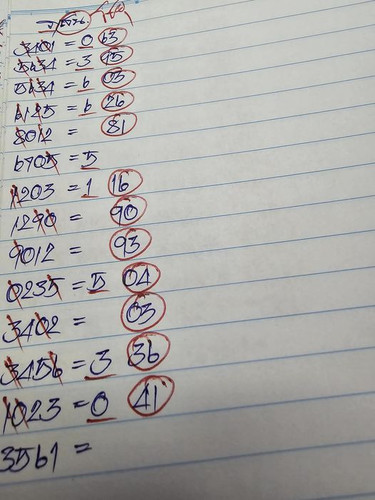 3401 = 0 63
5434 = 3 15
5434 = 6 03
6125 = 6 26
8012 = 81
6705 = 5
1203 = 1 16
1290 = 90
9012 = 93
0235 = 5 04
3402 = 03
3456 = 3 36
1023 = 0 41
3561 =